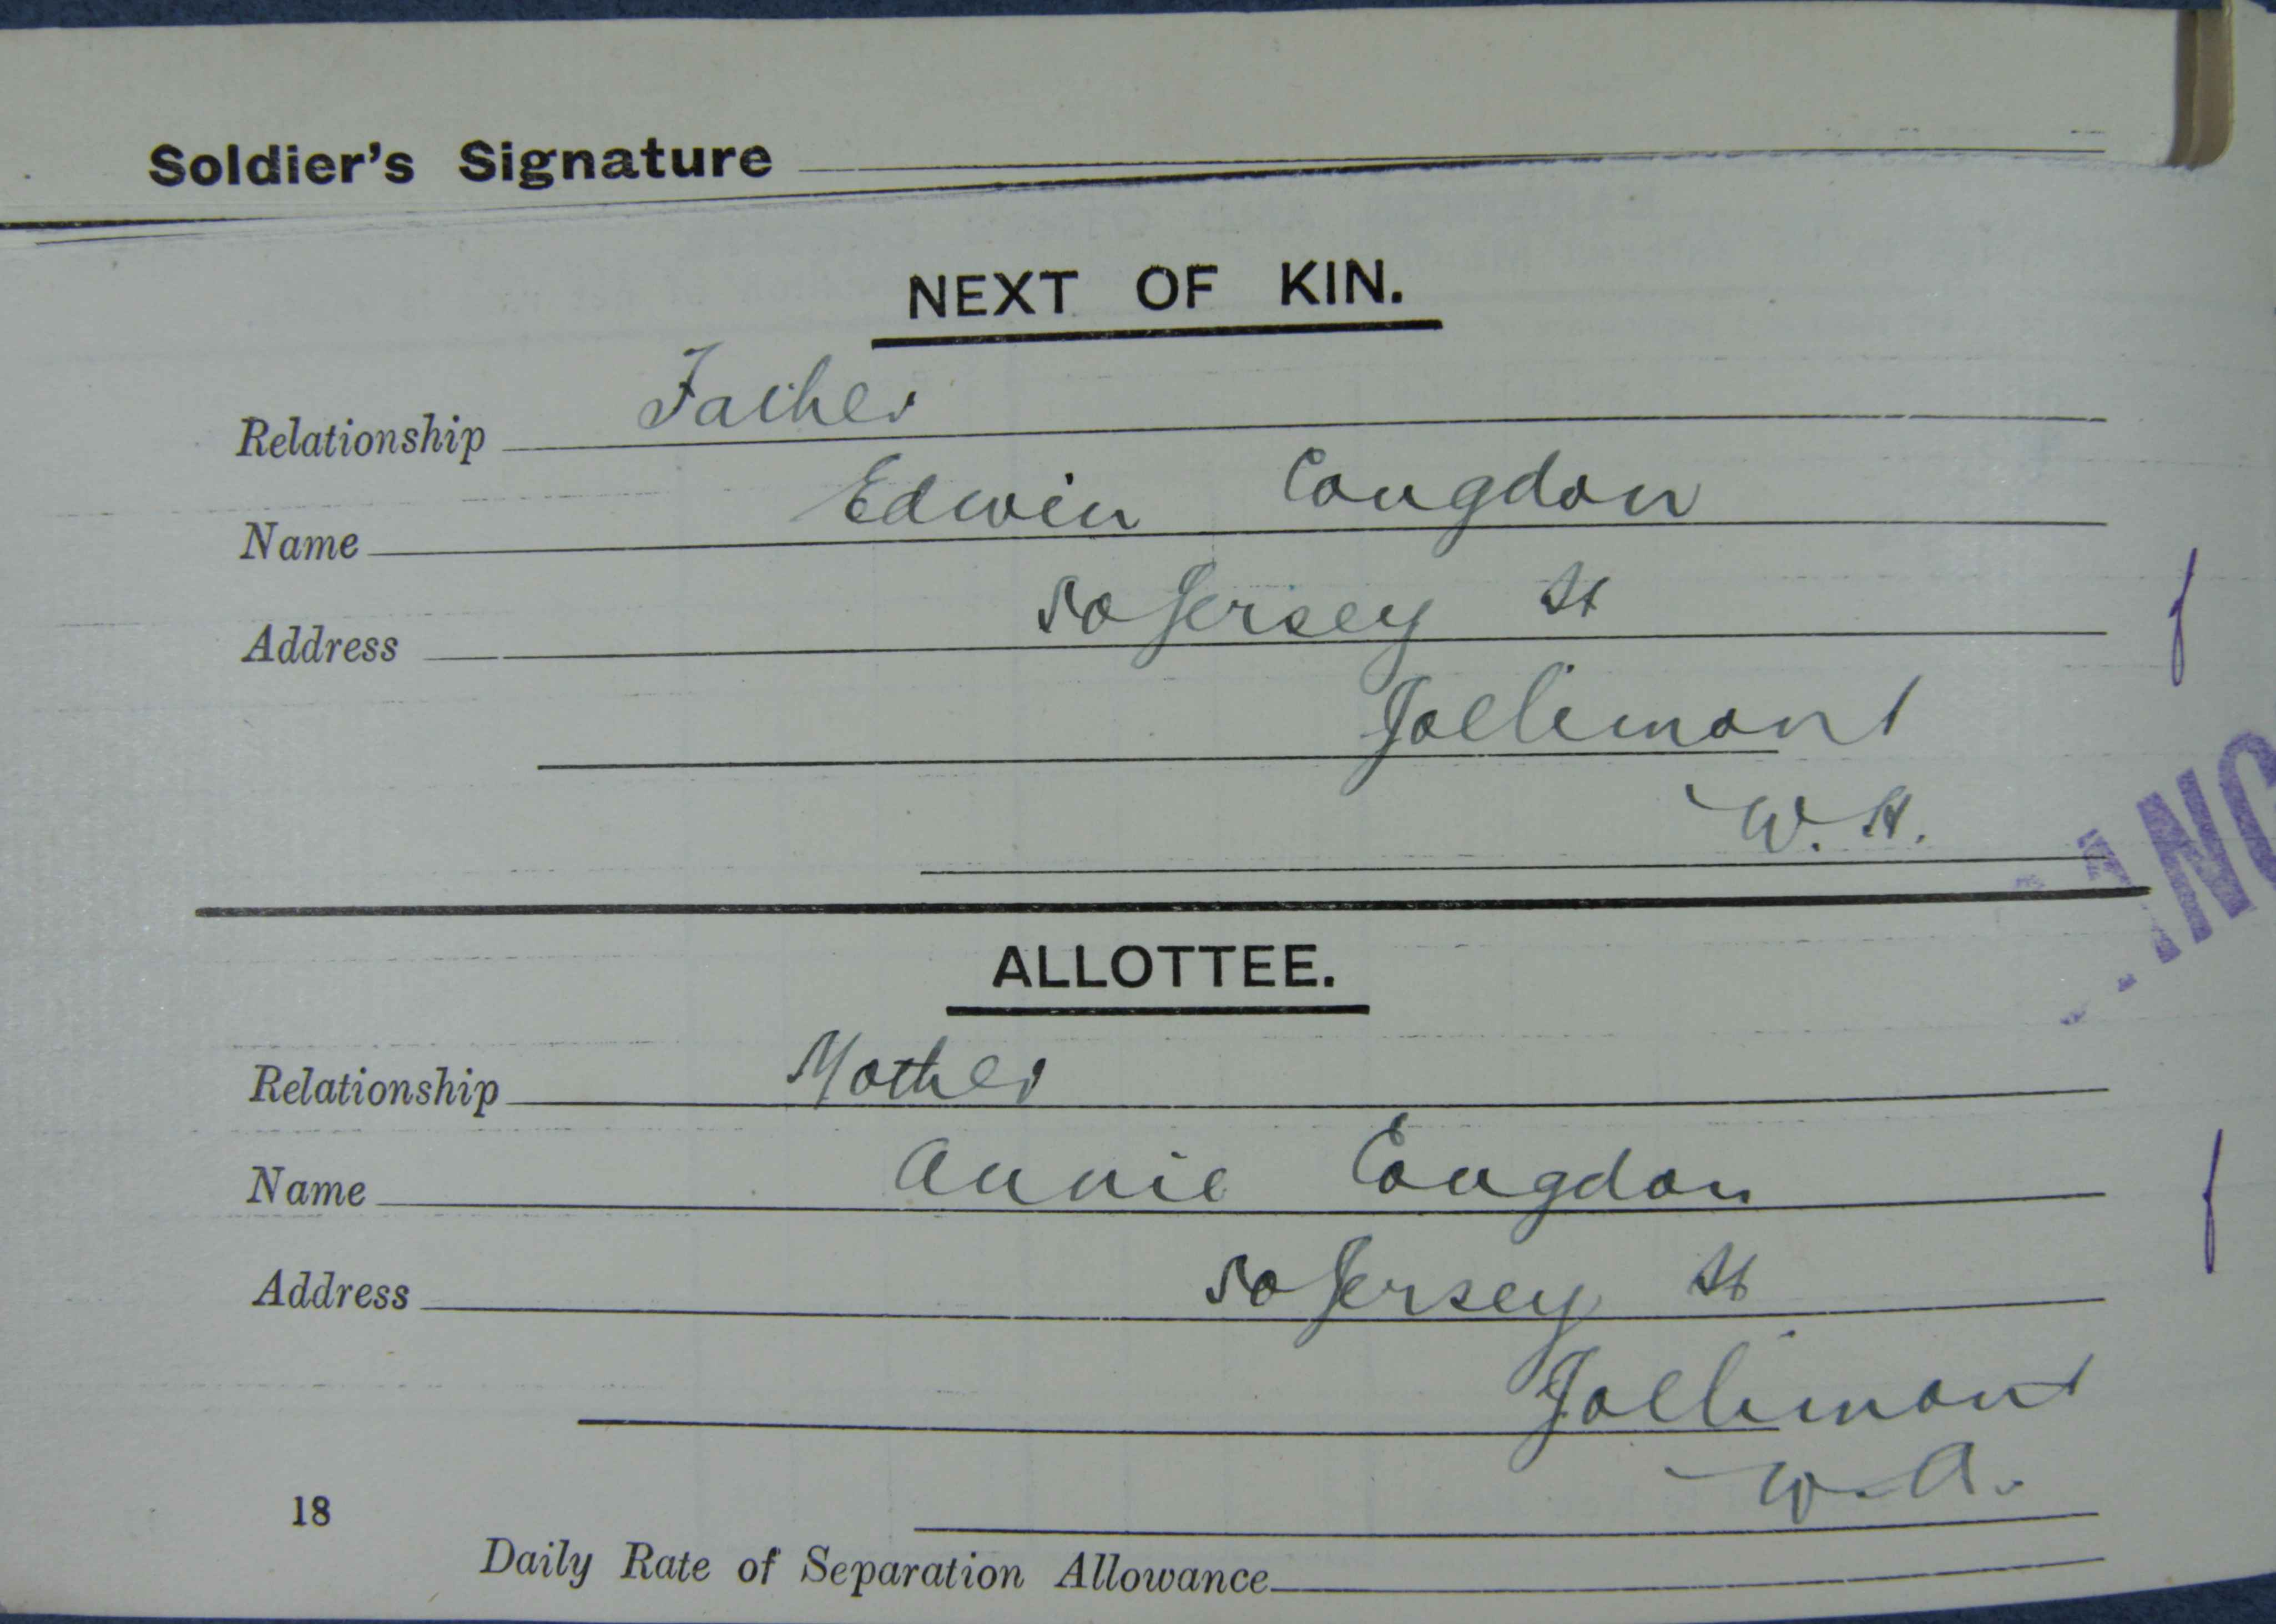 Soldier's Signature
NEXT OF KIN.
Relationship Father
Name Edwin Congdon
Address 50 Jersey St
Jollimont
W.A.
ANC
ALLOTTEE.
Relationship Mother
Name Annie Congdon
Address 50 Jersey St
Jollimont
W.A.
18
Daily Rate of Separation Allowance